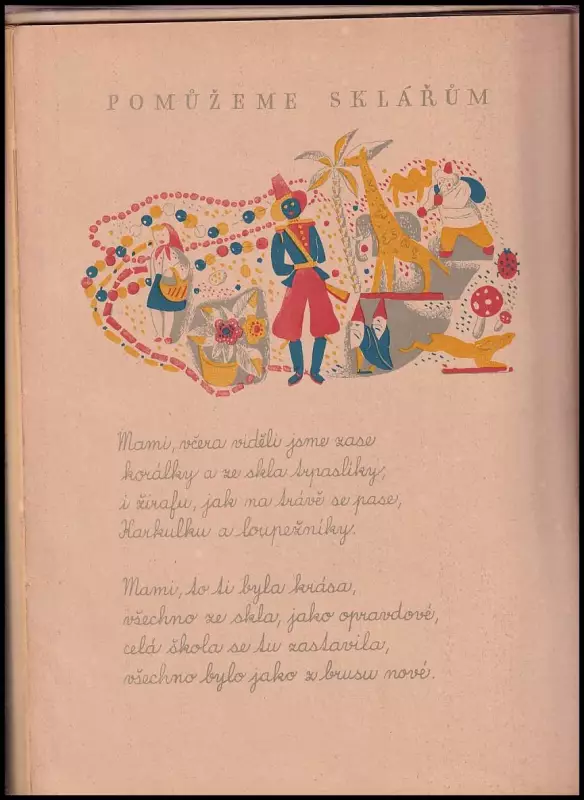 POMŮŽEME SKLÁŘŮM
Mami, včera viděli jsme zase
korálky a ze skla trpaslíky,
i žirafu, jak na trávě se pase,
Karkulku a loupežníky.
Mami, to ti byla krása,
všechno ze skla, jako opravdové,
celá škola se tu zastavila,
všechno bylo jako z brusu nové.